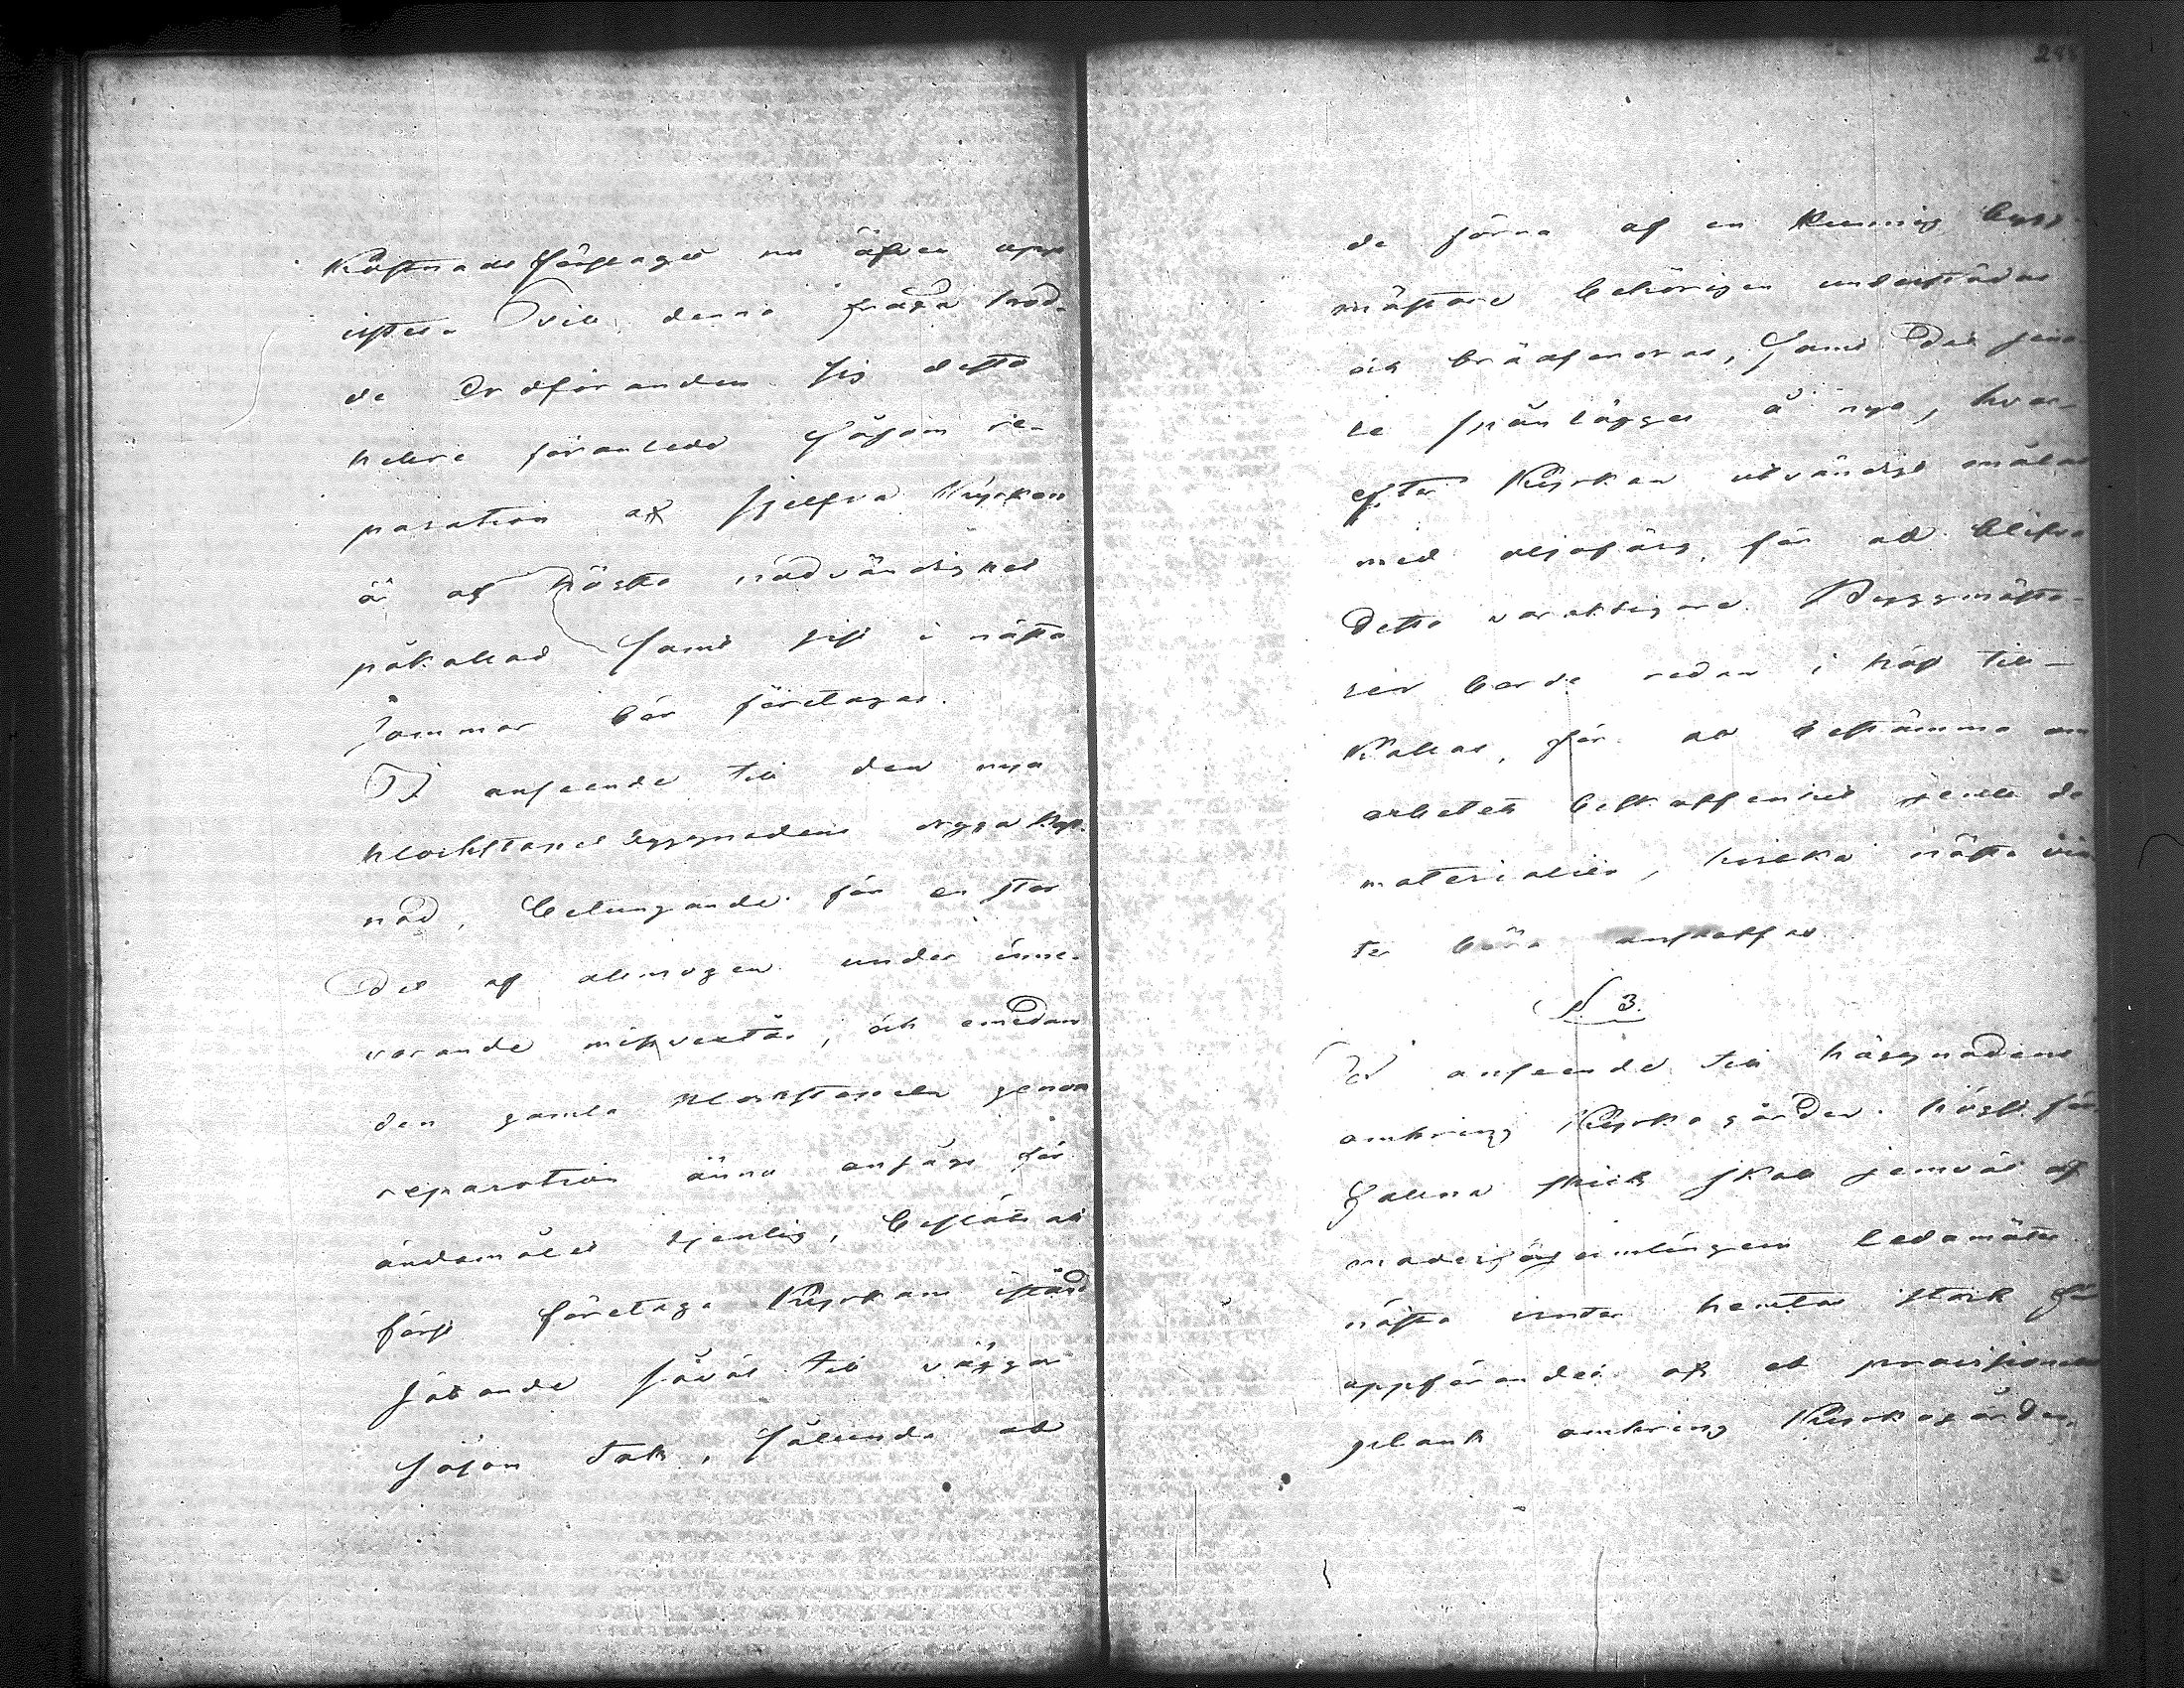 Kostnads förslaget nu äfven upp
istället. Vid denna fråga trod-
de Ordföranden sig desto
hellre föranledd såsom re-
paration af sjelfva Kyrkan
är af högsta nödvändighet
påkallad samt sist i nästa
sommar bör företagas.
I anseende till den nya
klockstapelbyggnadens dryga Kost-
nad, betungande för en stor
del af allmogen under inne-
varande missvextår, och emedan
den gamla klockstapeln genom
reparation ännu ansågs för
ändamålet tjenlig, beslöts att
först företaga Kyrkans istånd
sättande såväl till väggar
såsom tak, sålunda att
248
de förra af en kunnig bygg-
mästare behörigen understödas
och brädfodras, samt det sena-
re spånlägges å nyo, hvar-
efter Kyrkan utvändigt målas
med oljofärg, för att blifva
detta varaktigare. Byggmästa-
ren borde redan i höst till-
kallas, för att bestämma om
arbetets beskaffenhet jemte de
materialier, hvilka nästa vin
ter böra anskaffas.
§ 3.
I anseende till hägnadens
omkring Kyrkogården högst för
fallna skick skall jemväl af
ledamöter
nästa vinter hemtas stock för
uppförandet af ett provisionelt
plank omkring Kyrkogården,